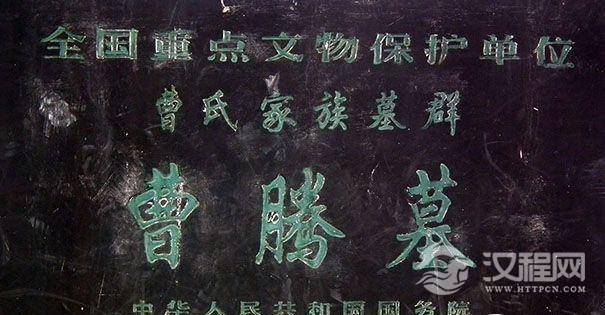 全国重点文物保护单位
曹氏家族墓群
曹腾墓
中华人民共和国国务院
汉程网
WWW.HTTPCN.COM